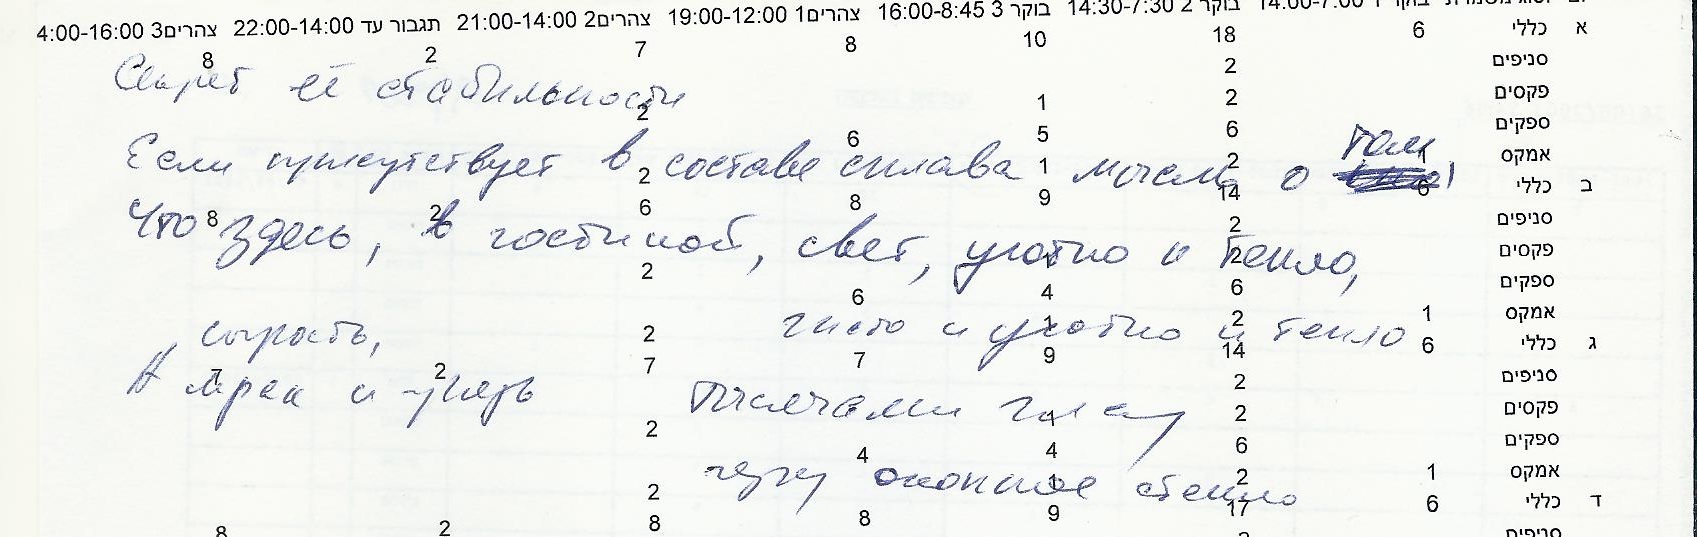 בוקר 2 14:30-7:30 בוקר 3 16:00-8:45 צהרים1 19:00-12:00 צהרים2 21:00-14:00 תגבור עד 22:00-14:00 צהרים3 4:00-16:00
א כללי 6 18 10 8 7 2 8
סניפים 2
פקסים 2 1 2
ספקים 6 5 6
אמקס 1 2 1 2
ב כללי 6 14 9 8 6 2 8
סניפים 2
פקסים 2 1 2
ספקים 6 4 6
אמקס 1 2 1 2
ג כללי 6 14 9 7 7 2 7
סניפים 2
פקסים 2 1 2
ספקים 6 4 4
אמקס 1 2 1 2
ד כללי 6 17 9 8 8 2 8
סניפים
Секрет её стабильности
Если присутствует в составе сплава о том
Что здесь, в гостиной, свет, уютно и тепло,
сырость, чисто и уютно и тепло
А мрак и грязь тысячами глаз
оконное стекло